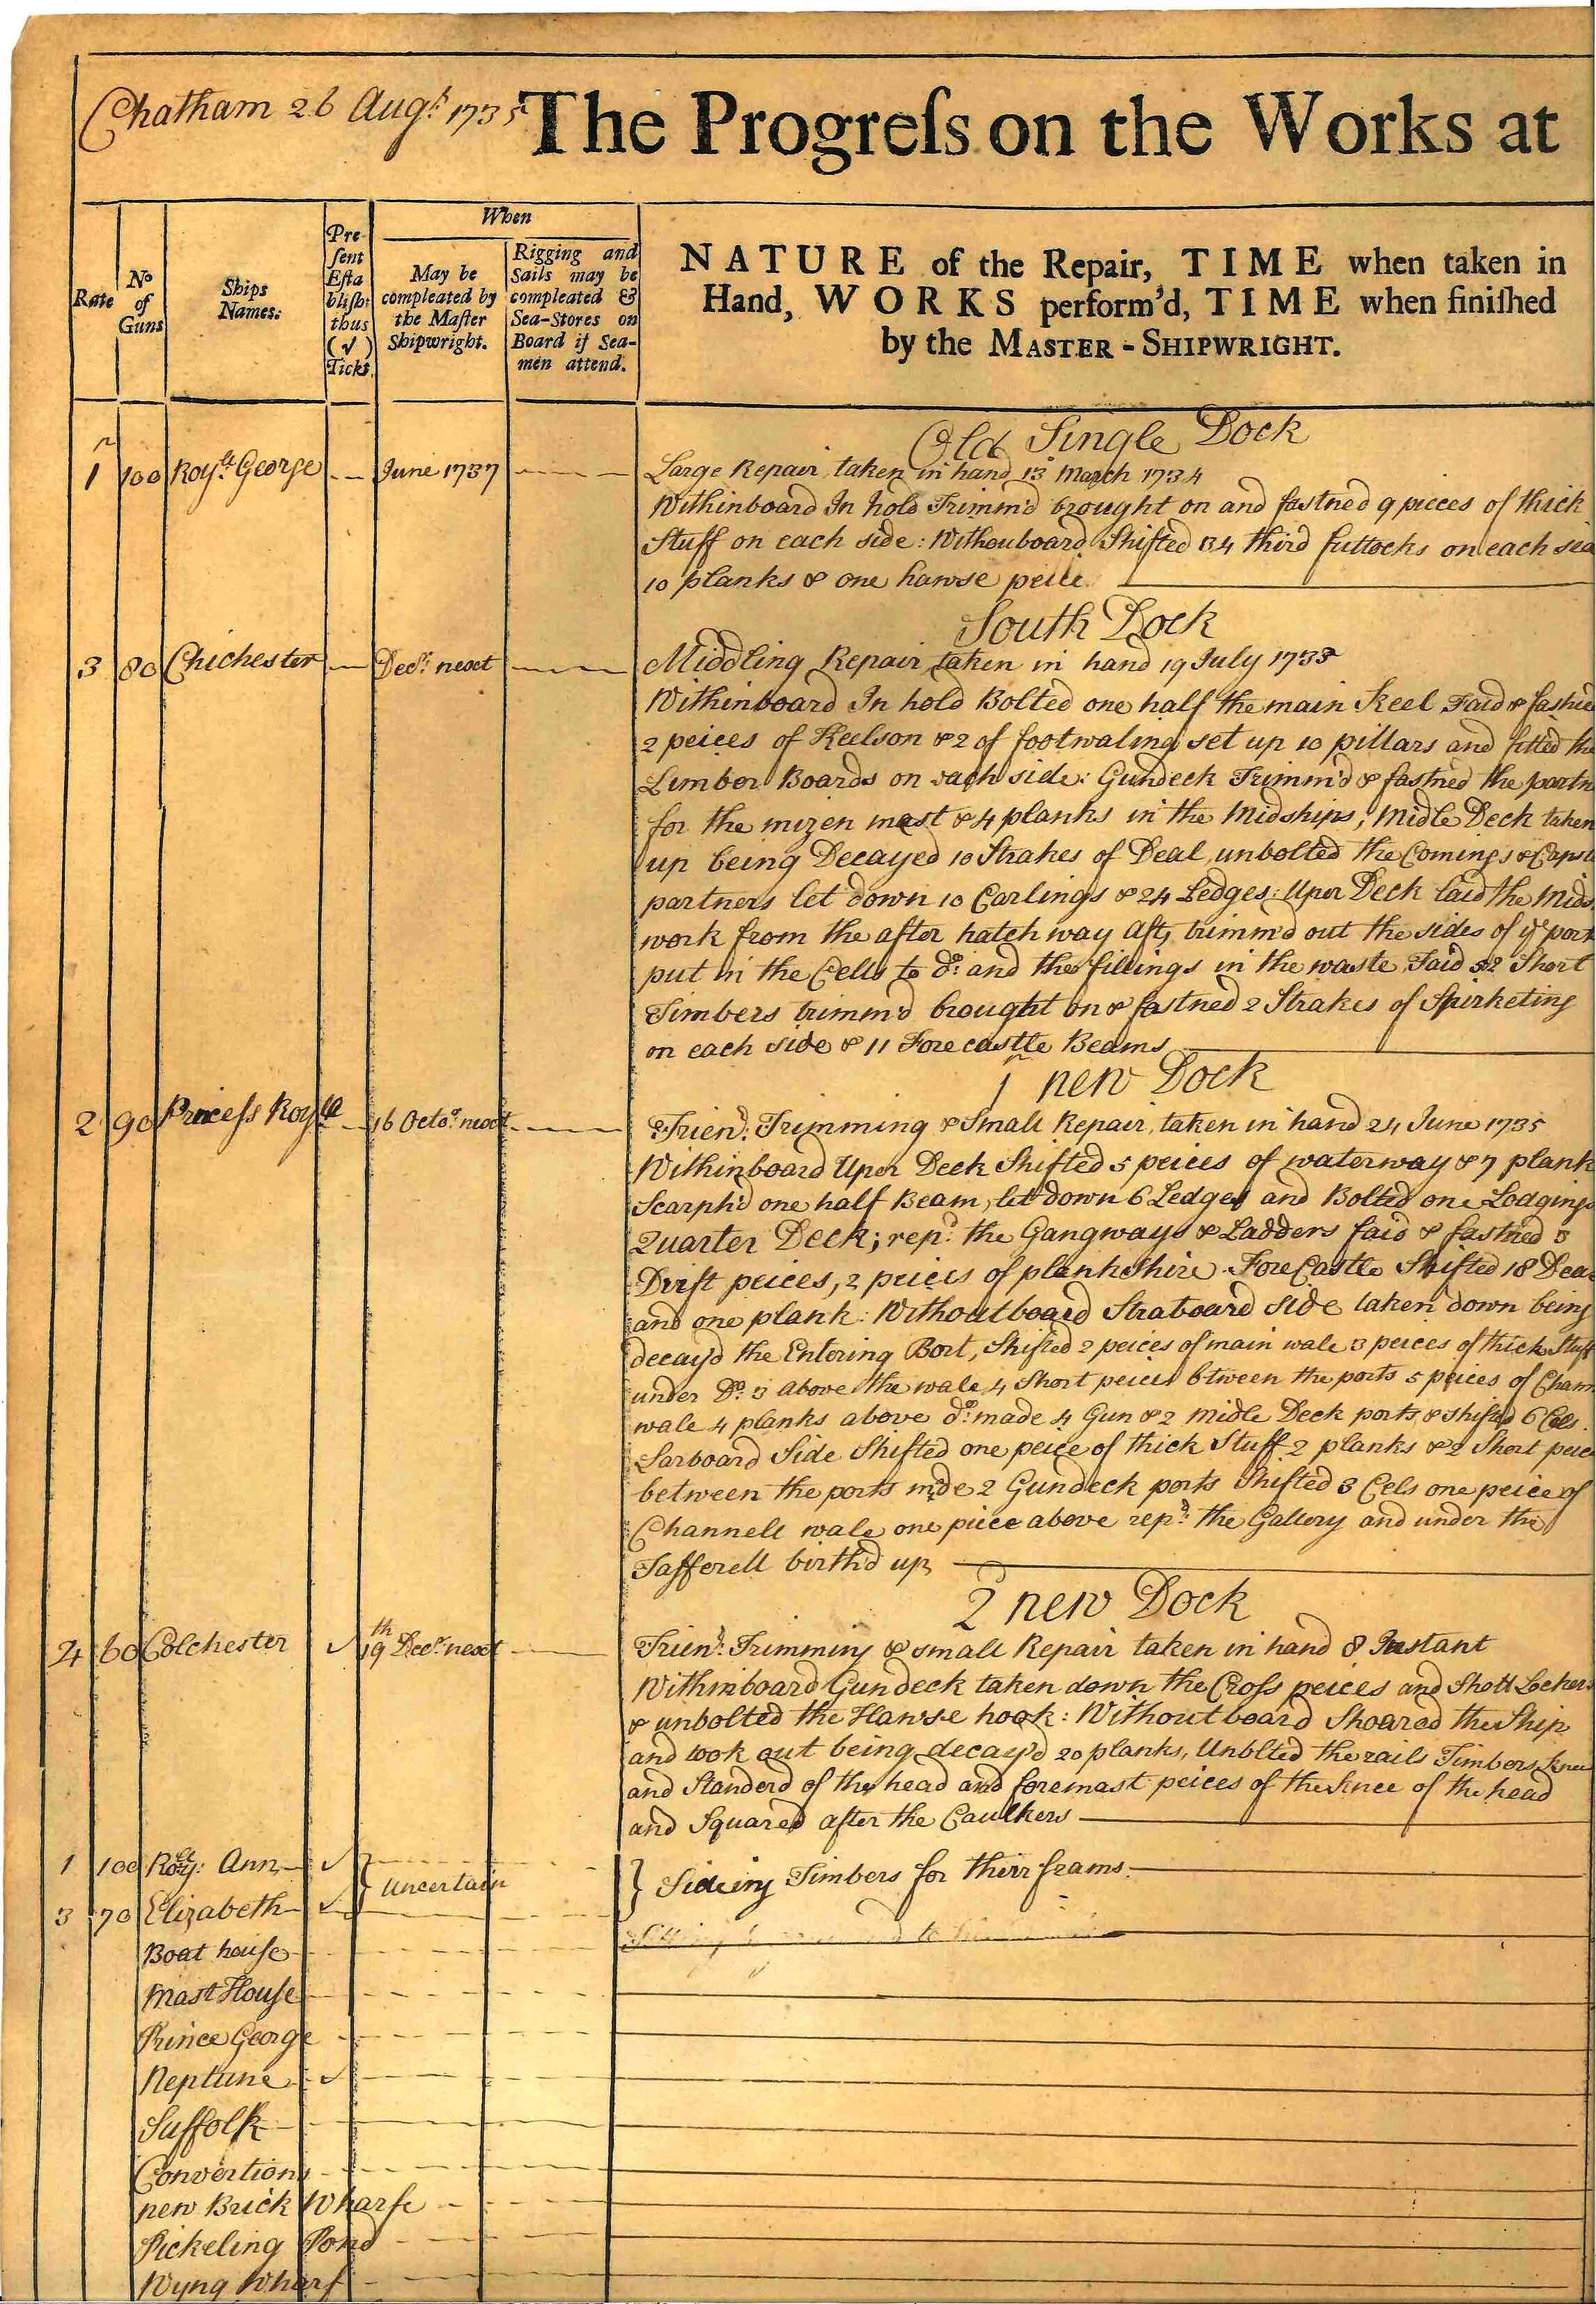 Chatham 26 Augt. 1735
The Progreſs on the Works at
Rate
No of Guns
Ships Names:
Pre ſent Eſta bliſh: thus (√) Tickt.
When
May be compleated by the Maſter Shipwright.
Rigging and Sails may be compleated & Sea-Stores on Board if Sea-men attend.
NATURE of the Repair, TIME when taken in
Hand, WORKS perform'd, TIME when finiſhed
by the MASTER-SHIPWRIGHT.
Old Single Dock
1 100 Royll. George -- June 1737 Large Repair taken in hand 13 March 1734
Withinboard In hold Trimm'd brought on and fastned 9 pieces of thick
Stuff on each side: Withouboard Shifted 34 third futtocks on each
10 planks & one hawse peice
South Dock
3 80 Chichester -- Decr. next Middling Repair taken in hand 19 July 1733
Withinboard In hold Bolted one half the main Keel Faid &
2 peices of Keelson & 2 of footwaling set up 10 pillars and fitted the
Limber Boards on each side: Gundeck Trimm'd & fastned the partn
for the mizen mast & 4 planks in the Midships; Midle Deck taken
up being Decayed 10 Strakes of Deal, unbolted the Comings & Capst
partners let down 10 Carlings & 24 Ledges: Uper Deck laid the Mids
work from the after hatch way aft, trimm'd out the sides of ye port
put in the Cells to do. and the fillings in the waste Faid 52 Short
Timbers trimm'd brought on & fastned 2 Strakes of Spirketing
on each side & 11 Forecastle Beams
1 new Dock
2 90 Princeſs Royll -- 16 Octor. next Triend: Trimming & Small Repair, taken in hand 24 June 1735
Withinboard Uper Deck Shifted 5 peices of waterway & 7 plank
Scarph'd one half Beam, let down 6 Ledges and Bolted one Lodging
Quarter Deck; repd. the Gangways & Ladders faid & fastned 3
Drift peices, 2 peices of plankshire. ForeCastle Shifted 18 Deal
and one plank: Withoutboard Straboard side taken down being
decay'd the Entering Bort, Shifted 2 peices of main wale 3 peices of thick Stuff
under Do. 3 above the wale 4 Short peices btween the ports 5 peices of Chann
wale 4 planks above do. made 4 Gun & 2 midle Deck ports & shifted 6 Cels.
Larboard Side Shifted one peice of thick Stuff 2 planks & 2 Short peice
between the ports made 2 Gundeck ports Shifted 3 Cels one peice of
Channell wale one piece above repd. the Gallery and under the
Tafferell birth'd up
2 new Dock
4 60 Colchester √ 19th Decr. next Triend: Trimming & small Repair taken in hand 8 Instant
Withinboard Gundeck taken down the Croſs peices and Shott Lockers
& unbolted the Hawse hook: Without board Shoared the Ship
and took out being decay'd 20 planks, Unblted the rails Timbers, knee
and Standerd of the head and foremast peices of the Knee of the head
and Squared after the Caulkers
1 100 Royll: Ann √ } Uncertain } Sideing Timbers for their frams.
3 70 Elizabeth √
Boat houſe
Mast Houſe
Prince George
Neptune √
Suffolk
Convertion
new Brick Wharfe
Pickeling Pond
Wyng Wharf